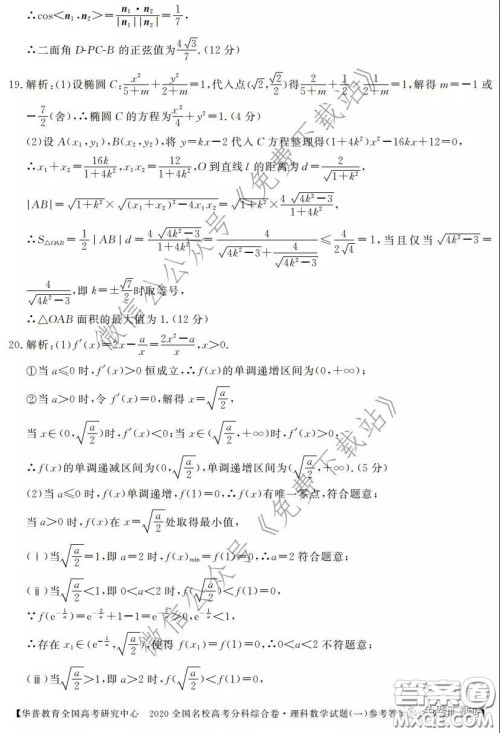 ∴cos<n₁,n₂>=n₁·n₂/|n₁||n₂|=1/7,
∴二面角 D-PC-B 的正弦值为4√3/7.(12 分)
19.解析:(1)设椭圆 C:x²/(5+m)+y²/(2+m)=1,代入点(√2,√2/2)得2/(5+m)+(1/2)/(2+m)=1,解得 m=-1 或
-7/2(舍),∴椭圆 C 的方程为x²/4+y²=1.(4 分)
(2)设 A(x₁,y₁),B(x₂,y₂),将 y=kx-2 代入 C 方程整理得(1+4k²)x²-16kx+12=0,
∴x₁+x₂=16k/(1+4k²),x₁x₂=12/(1+4k²),O 到直线 l 的距离为 d=2/√(1+k²),
|AB|=√(1+k²)×√((x₁+x₂)²-4x₁x₂)=√(1+k²)×4√(4k²-3)/(1+4k²),
∴S△OAB=1/2|AB|d=4√(4k²-3)/(1+4k²)=4/(√(4k²-3)+4/√(4k²-3))≤4/(2√4)=1,当且仅当√(4k²-3)=
4/√(4k²-3),即 k=±√7/2时取等号,
∴△OAB 面积的最大值为 1.(12 分)
20.解析:(1)f′(x)=2x-a/x=(2x²-a)/x,x>0.
①当 a≤0 时,f′(x)>0 恒成立,∴f(x)的单调递增区间为(0,+∞);
②当 a>0 时,令 f′(x)=0,解得 x=√(a/2),
当 x∈(0,√(a/2))时,f′(x)<0;当 x∈(√(a/2),+∞)时,f′(x)>0,
∴f(x)的单调递减区间为(0,√(a/2)),单调递增区间为(√(a/2),+∞).(5 分)
(2)当 a≤0 时,f(x)单调递增,f(1)=0,∴f(x)有唯一零点,符合题意;
当 a>0 时,f(x)在 x=√(a/2)处取得最小值,
(ⅰ)当√(a/2)=1,即 a=2 时,f(x)min=f(1)=0,∴a=2 符合题意;
(ⅱ)当√(a/2)<1,即 0<a<2 时,f(√(a/2))<f(1)=0,
∵f(e^(-1/a))=e^(-2/a)+1-1=e^(-2/a)>0,e^(-1/a)<1,
∴存在 x₁∈(e^(-1/a),√(a/2)),使得 f(x₁)=f(1)=0,∴0<a<2 不符题意;
(ⅲ)当√(a/2)>1,即 a>2 时,f(√(a/2))<f(1)=0,
【华普教育全国高考研究中心 2020 全国名校高考分科综合卷·理科数学试题(一)参考答
微信公众号《免费下载站》
微信公众号《免费下载站》
答案